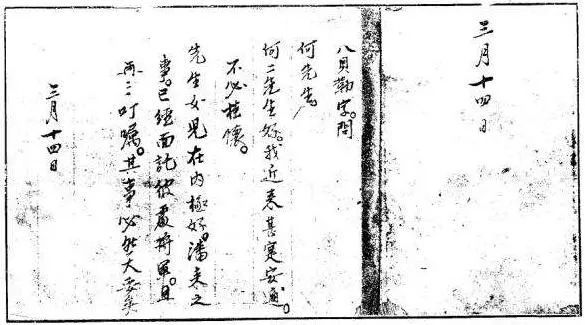 三月十四日
八貝勒字。問
何先生
何二先生好。我近来甚寔安通。
不必掛懷。
先生女兒在内極好。潘耒之
事。已經面託彼處將軍。且
再三叮嘱。其事必然大妥矣
三月十四日